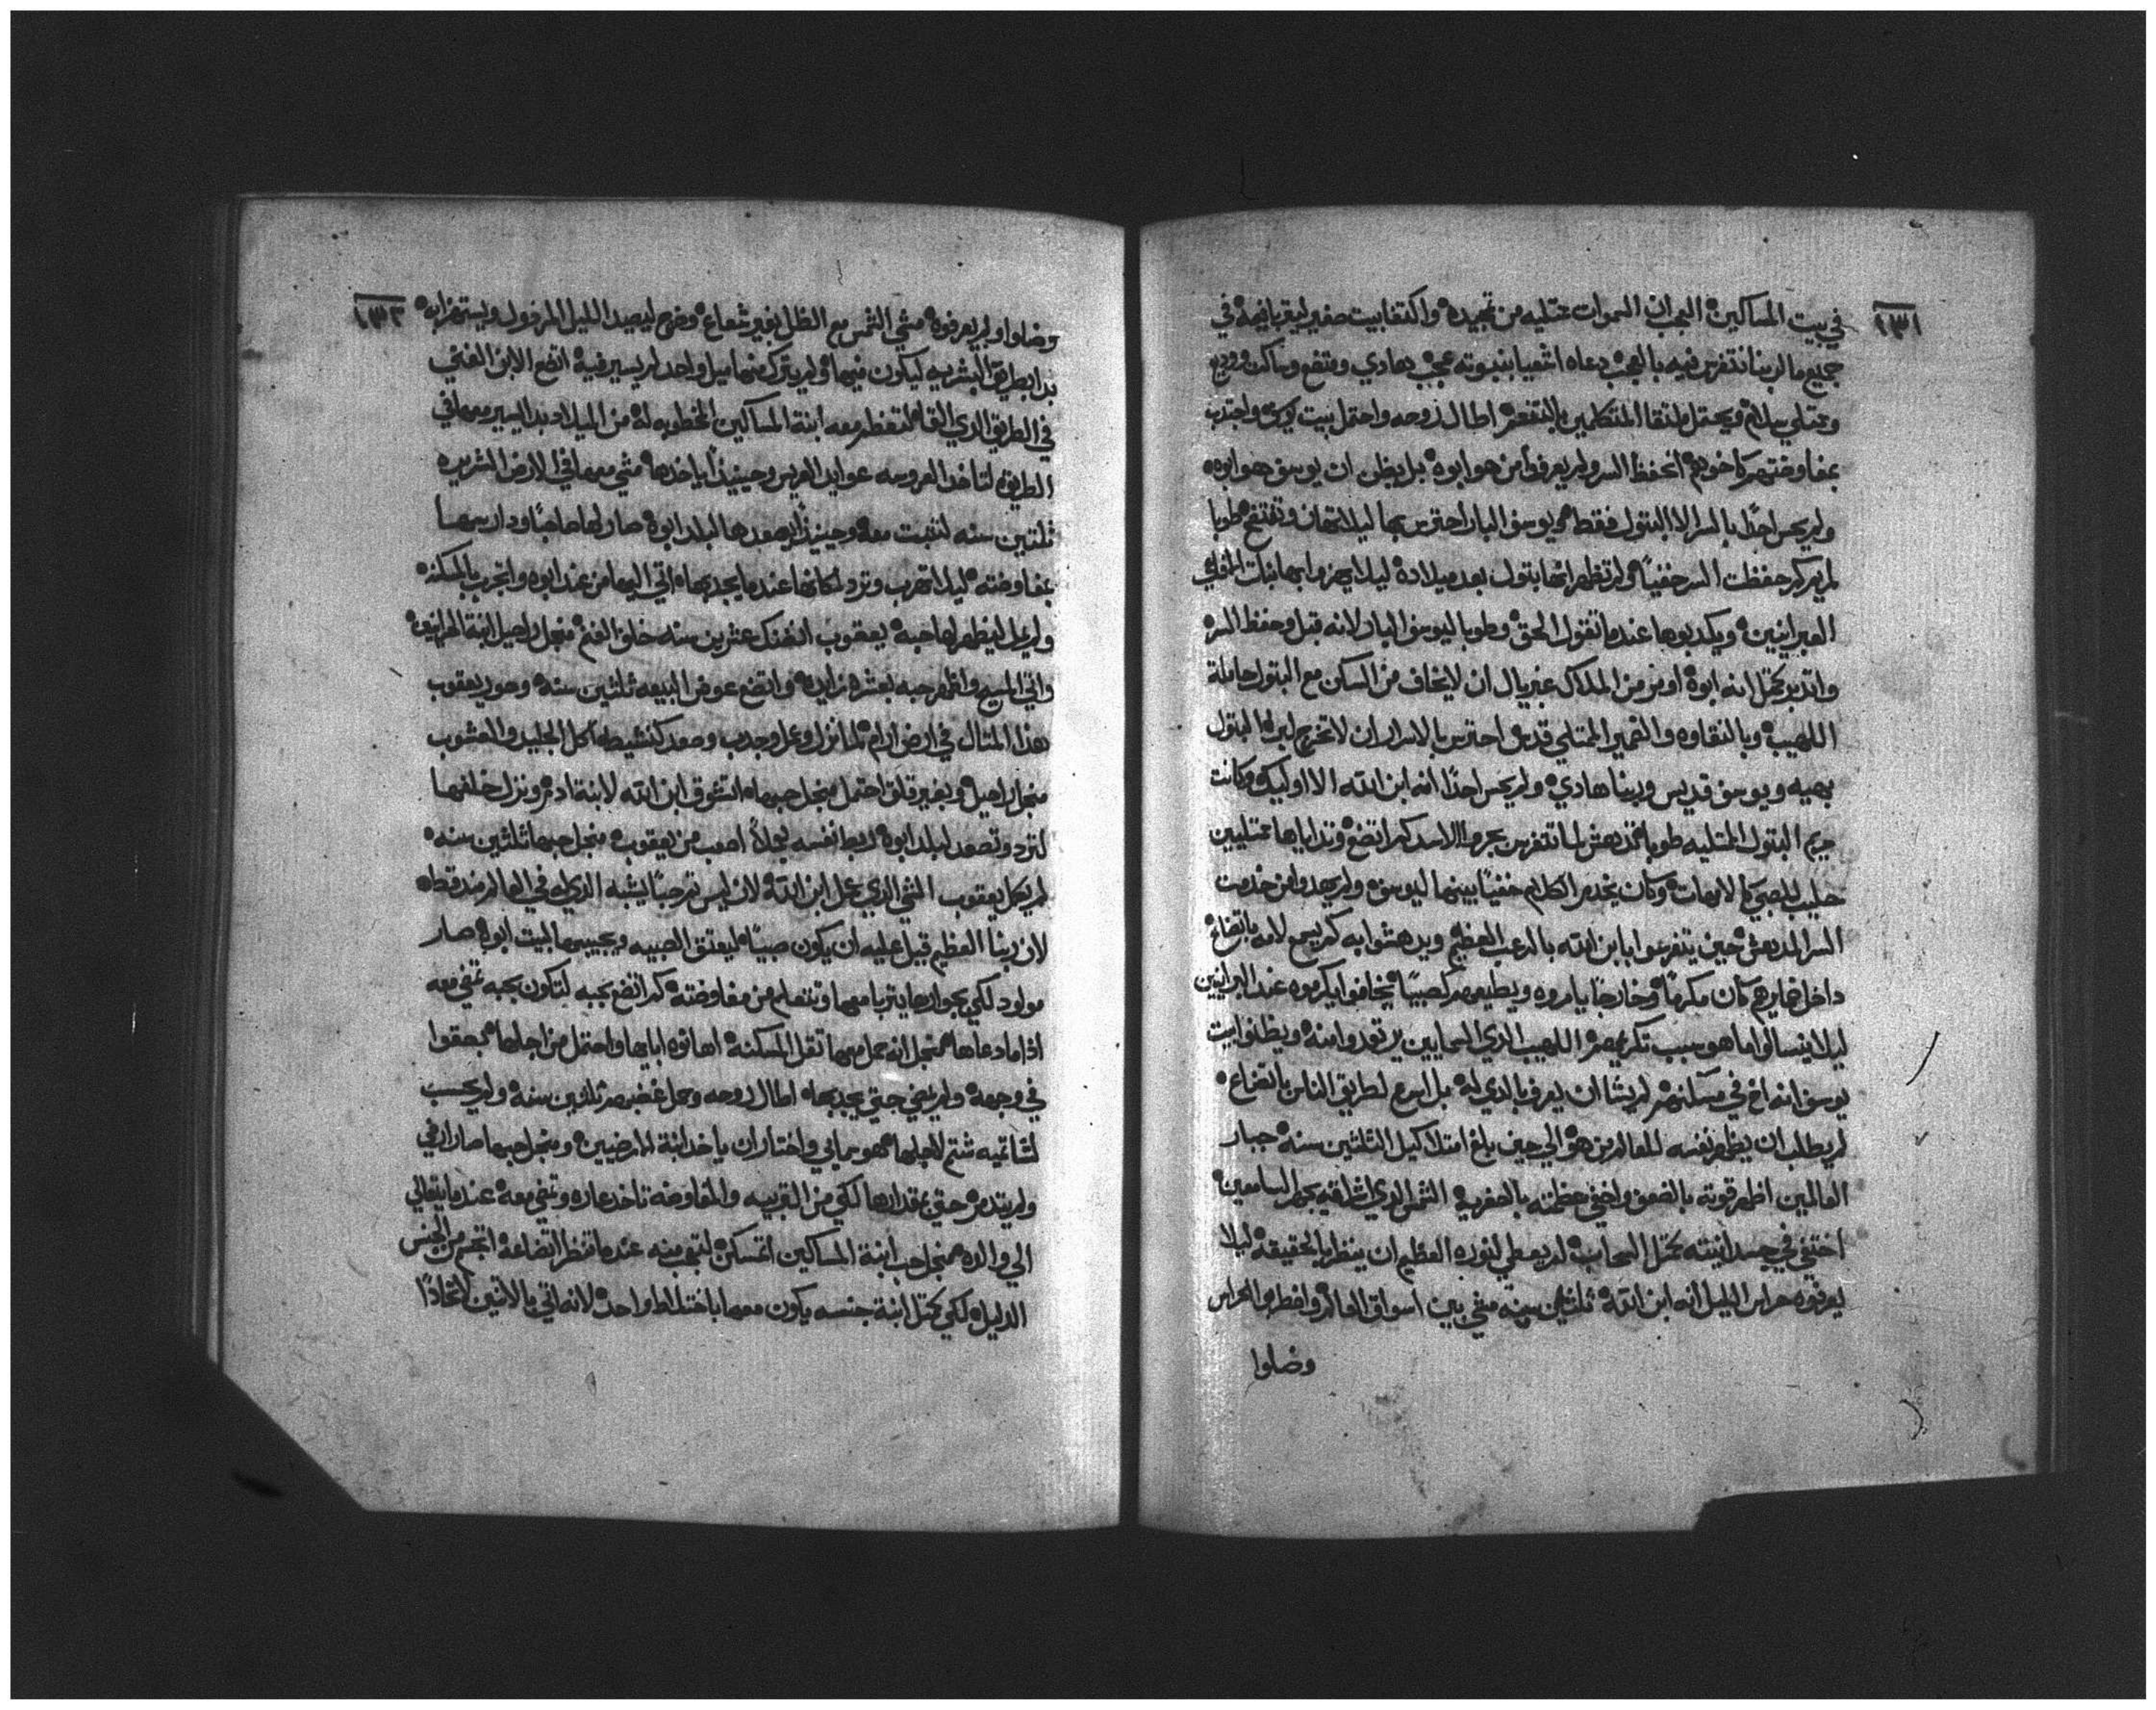 ١٣١
في بيت المساكين ٥ العجب ان السموات ممتليه من تمجيده ٥ واكتفا ببيت صغير ليقربا فيه ٥ في
جميع ما لربنا نتفرس فيه بالعجب ٥ دعاه اشعيا بنبوته عجب ٥ هادي ومتضع وساكت ووديع
وممتلي سلام ٥ ويحتمل ملتقا المتكلمين بالتقعر ٥ اطال روحه واحتمل ببيت يوسف واجتذب
بمفاوضتهم كاخوتهم ٥ انحفظ السر ولم يعرف من هو ابوه ٥ بل يظن ان يوسف هو ابوه ٥
ولم يحس احدًا بالسر الا البتول فقط ٥ ويوسف البار احترس بها ليلا تهان وتفتضح ٥ طوبا
لمريم كم حفظت السر خفيًا ٥ ولم تظهر انها بتول بعد ميلاده ٥ ليلا يهزوا بها بنات
العبرانيين ٥ ويكدبوها عندما تقول الحق ٥ وطوبا ليوسف البار لانه قبل وحفظ السر ٥
واتدبر كمتل انه ابوه ٥ اوتمن من الملاك غبريال ان لا يخاف من السكن مع البتول حاملة
اللهيب ٥ وبالنقاوه والضمير الممتلي قدس احترس بالاسرار ان لا تخرج لبرا ٥ البتول
بهيه ويوسف قديس وربنا هادي ٥ ولم يحس احدًا انه ابن الله الا اوليك ٥ وكانت
مريم البتول الممتليه طوبا تندهش لما تتفرس بجرو الاسد كم اتضع ٥ وتداياها ممتليين
حليب للصبي كالامهات ٥ وكان يخدم الكلام خفيًا بينهما ليوسف ٥ ولم يهدوا من خدمت
السر المدهش ٥ حين يتفرسوا بابن الله بالرعب العظيم ٥ ويدهشوا به كم يسمع لامه باتضاع ٥
داخل ضمايرهم كان مكرمًا ٥ وخارجًا يامروه ويطيعهم كصبيًا ٥ يخافوا يكرموه عند البرانيين
ليلا ينسالوا ما هو سبب تكريمهم ٥ اللهيب الذي السماييين يرتعدوا منه ٥ ويظنوا بيت
يوسف انه اخ في مسكنهم ٥ لم يشا ان يعرف بالدي له ٥ بل اسرع لطريق الناس باتضاع ٥
لم يطلب ان يظهر نفسه للعالم من هو ٥ الي حين بلغ امتلا كيل الثلثين سنه ٥ جبار
العالمين اظهر قوته بالضعف واخفي عظمته بالصغر ٥ الشمس الدي اشراقه يجهر السامعين ٥
اختفي في جسدانيته كمتل السحاب ٥ لم يعطي لنوره العظيم ان ينظر بالحقيقه ٥ ليلا
يعرفوه حراس الليل انه ابن الله ٥ ثلثين سنه مشي بين اسواق العالم ٥ واضطربوا الحراس
وضلوا
١٣٢
وضلوا ولم يعرفوه ٥ مشي الشمس مع الظل بغير شعاع ٥ وضرح ليصيد الليل المرذول ويستهزا به ٥
بدا بطريق البشريه ليكون فيها ٥ ولم يترك منها ميل واحد لم يسير فيه ٥ اتضع الابن الغني
في الطريق الدي القاه لتفطم معه ابنة المساكين المخطوبه له ٥ من الميلاد بدا ليسير معها في
الطريق ٥ لتاخذ العروسه عوايد العريس وحينيذًا ياخدها ٥ مشي معها في الارض الشريره
ثلثين سنه لتثبت معه ٥ وحينيذًا يصعدها لبلد ابوه ٥ صار لها صاحبًا ودارسها
بمفاوضته ٥ ليلا تهرب وترد لمكانها عندما يجدبها ٥ اتي اليها من عند ابوه واتجرب بالمسكنه ٥
ولم يمل ليظهر لها حبه ٥ يعقوب انضنك عشرين سنه خلف الغنم ٥ منجل راحيل ابنة الحرانيين ٥
واتي المسيح واظهر حبه بعشره زايده ٥ واتضع عوض البيعه ثلثين سنه ٥ وصور يعقوب
هذا المثال في ارض ارام ٥ لما نزل وعمل وجدب وصعد كنشيط ٥ اكل الجليد والشوب
منجل راحيل ٥ وبغير قلق احتمل منجل حبها ٥ اتشوق ابن الله لابنة ادم ٥ ونزل خلفها
لترد وتصعد لبلد ابوه ٥ ربط نفسه بجلاد اصعب من يعقوب ٥ منجل حبها ثلثين سنه ٥
لم يكمل يعقوب الشي الدي عمل ابن الله ٥ لان ليس ثم حبًا يشبه الدي له في العالم منذ قط ٥
لان ربنا العظيم قبل عليه ان يكون صبيًا ٥ ليعتق الصبيه ويجيبها لبيت ابوه ٥ صار
مولود لكي بجوارها يتربا معها وتتعلم من مفاوضته ٥ كم اتضع بحبه لتكون بحبه تمضي معه
اذا ما دعاها ٥ منجل انه حمل معها تقل المسكنه ٥ اهانوه اباها واحتمل من اجلها ٥ بصقوا
في وجهه ٥ ولم يمضي حتي يجدبها ٥ اطال روحه وحمل غضبهم ثلثين سنه ٥ ولم يحسب
لشاتميه شتم لاجلها ٥ هو سمايي واختار ان ياخد ابنة الارضيين ٥ ومنجل حبها صار ارضي
ولم يتدمر ٥ حتي بمقدارها لكي من القربيه والمفاوضه تاخد عاده وتمضي معه ٥ عندما يتعالي
الي والده ٥ منجل حب ابنة المساكين اتمسكن لتعجب منه عندما تنظر اتضاعه ٥ اتجسم من الجنس
الدليل ٥ لكي كمتل ابنة جنسه يكون معها باختلاط واحد ٥ لانه اتي بالاتنين لاتحادًا